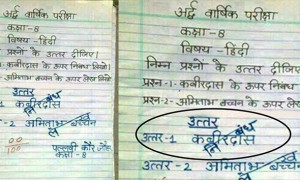 अर्द्ध वार्षिक परीक्षा
कक्षा-8
विषय-हिंदी
प्रश्नों के उत्तर दीजिए।
-1-कबीरदास के ऊपर निबंध लिखो।
-अमिताभ बच्चन के ऊपर लेख लिखो
उत्तर
कबीरदास
-2 अमिताभ बच्चन
कक्षा - 8
अर्द्ध वार्षिक परीक्षा
कक्षा-8
विषय-हिंदी
निम्न प्रश्नों के उत्तर दीजिए
प्रश्न-1-कबीरदास के ऊपर निबंध
प्रश्न-2-अमिताभ बच्चन के ऊपर
उत्तर
उत्तर-1 कबीरदास
निबंध
उत्तर-2 अमिताभ बच्चन